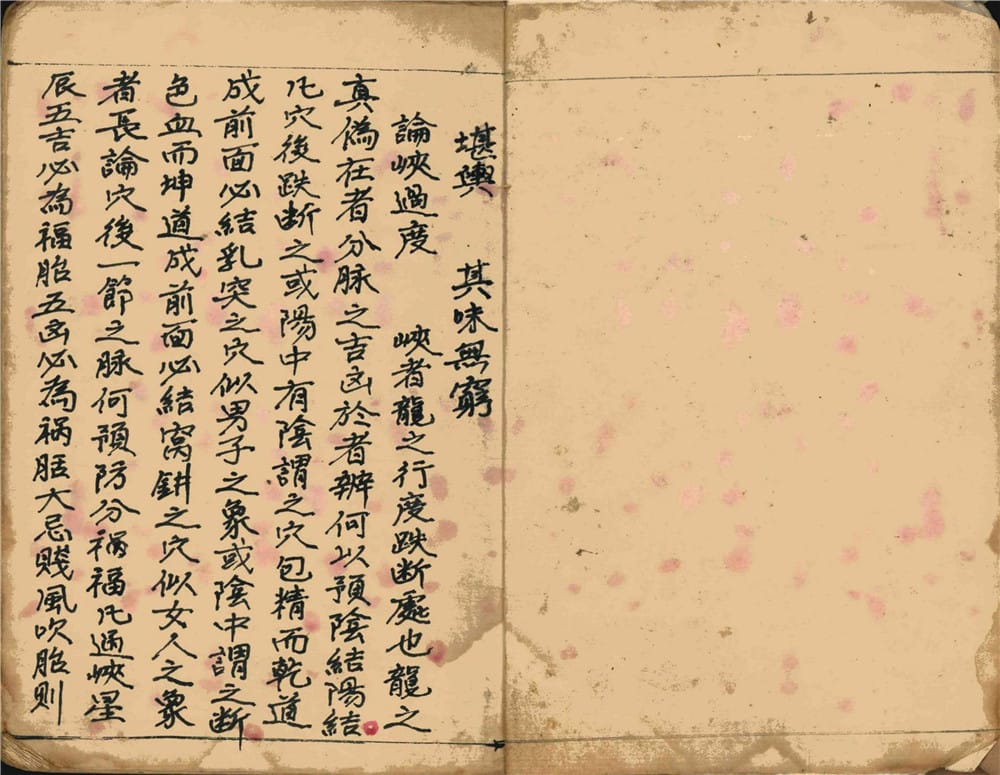 堪輿　其味無窮
論峽過度　峽者龍之行度跌断處也龍之
真偽在者分脉之吉凶於者辨何以預陰結陽結
凡穴後跌断之或陽中有陰謂之穴包精而乾道
成前面必結乳突之穴似男子之象或陰中謂之断
色血而坤道成前面必結窩鉗之穴似女人之象
者長論穴後一節之脉何預防分禍福凡過峽星
辰五吉必為福胎五凶必為禍胎大忌賤風吹胎则